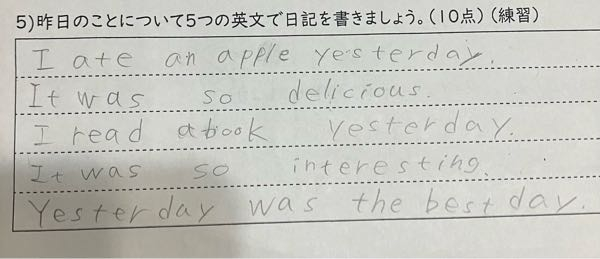 5)昨日のことについて5つの英文で日記を書きましょう。(10点)(練習)
I ate an apple yesterday.
It was so delicious.
I read abook yesterday.
It was so interesting.
Yesterday was the best day.